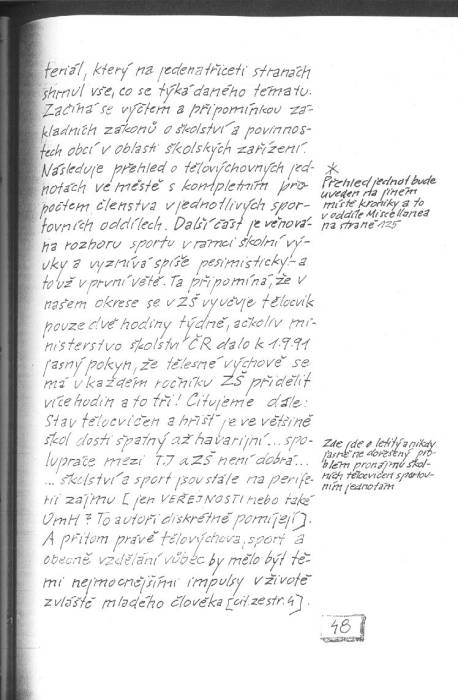 teriál, který na jedenatřiceti stranách
shrnul vše, co se týká daného tematu.
Začíná se výčtem a připomínkou zá-
kladních zákonů o školství a povinnos-
tech obcí v oblasti školských zařízení.
Následuje přehled o tělovýchovných jed-
notách ve městě s kompletním pro-
počtem členstva v jednotlivých spor-
tovních oddílech. Další část je věnová-
na rozboru sportu v rámci školní vý-
uky a vyznívá spíše pesimisticky – a
to už v první větě. Ta připomíná, že v
našem okrese se v ZŠ vyučuje tělocvik
pouze dvě hodiny týdně, ačkoliv mi-
nisterstvo školství ČR dalo k 1.9.91
jasný pokyn, že tělesné výchově se
má v každém ročníku ZŠ přidělit
více hodin a to tři! Citujeme dále:
Stav tělocvičen a hřišť je ve většině
škol dosti špatný až havarijní... spo-
lupráce mezi TJ a ZŠ není dobrá...
... školství a sport jsou stále na perife-
rii zájmu [jen VEŘEJNOSTI nebo také
ÚmH? To autoři diskrétně pomíjejí].
A přitom právě tělovýchova, sport a
obecně vzdělání vůbec by mělo být tě-
mi nejmocnějšími impulsy v životě
zvláště mladého člověka [cit. ze str. 4].
*
Přehled jednot bude
uveden na jiném
místě kroniky a to
v oddíle Miscellanea
na straně 125
Zde jde o letitý a nikdy
jasně ne dořešený pro-
blém pronájmu škol-
ních tělocvičen sportov-
ním jednotám
48